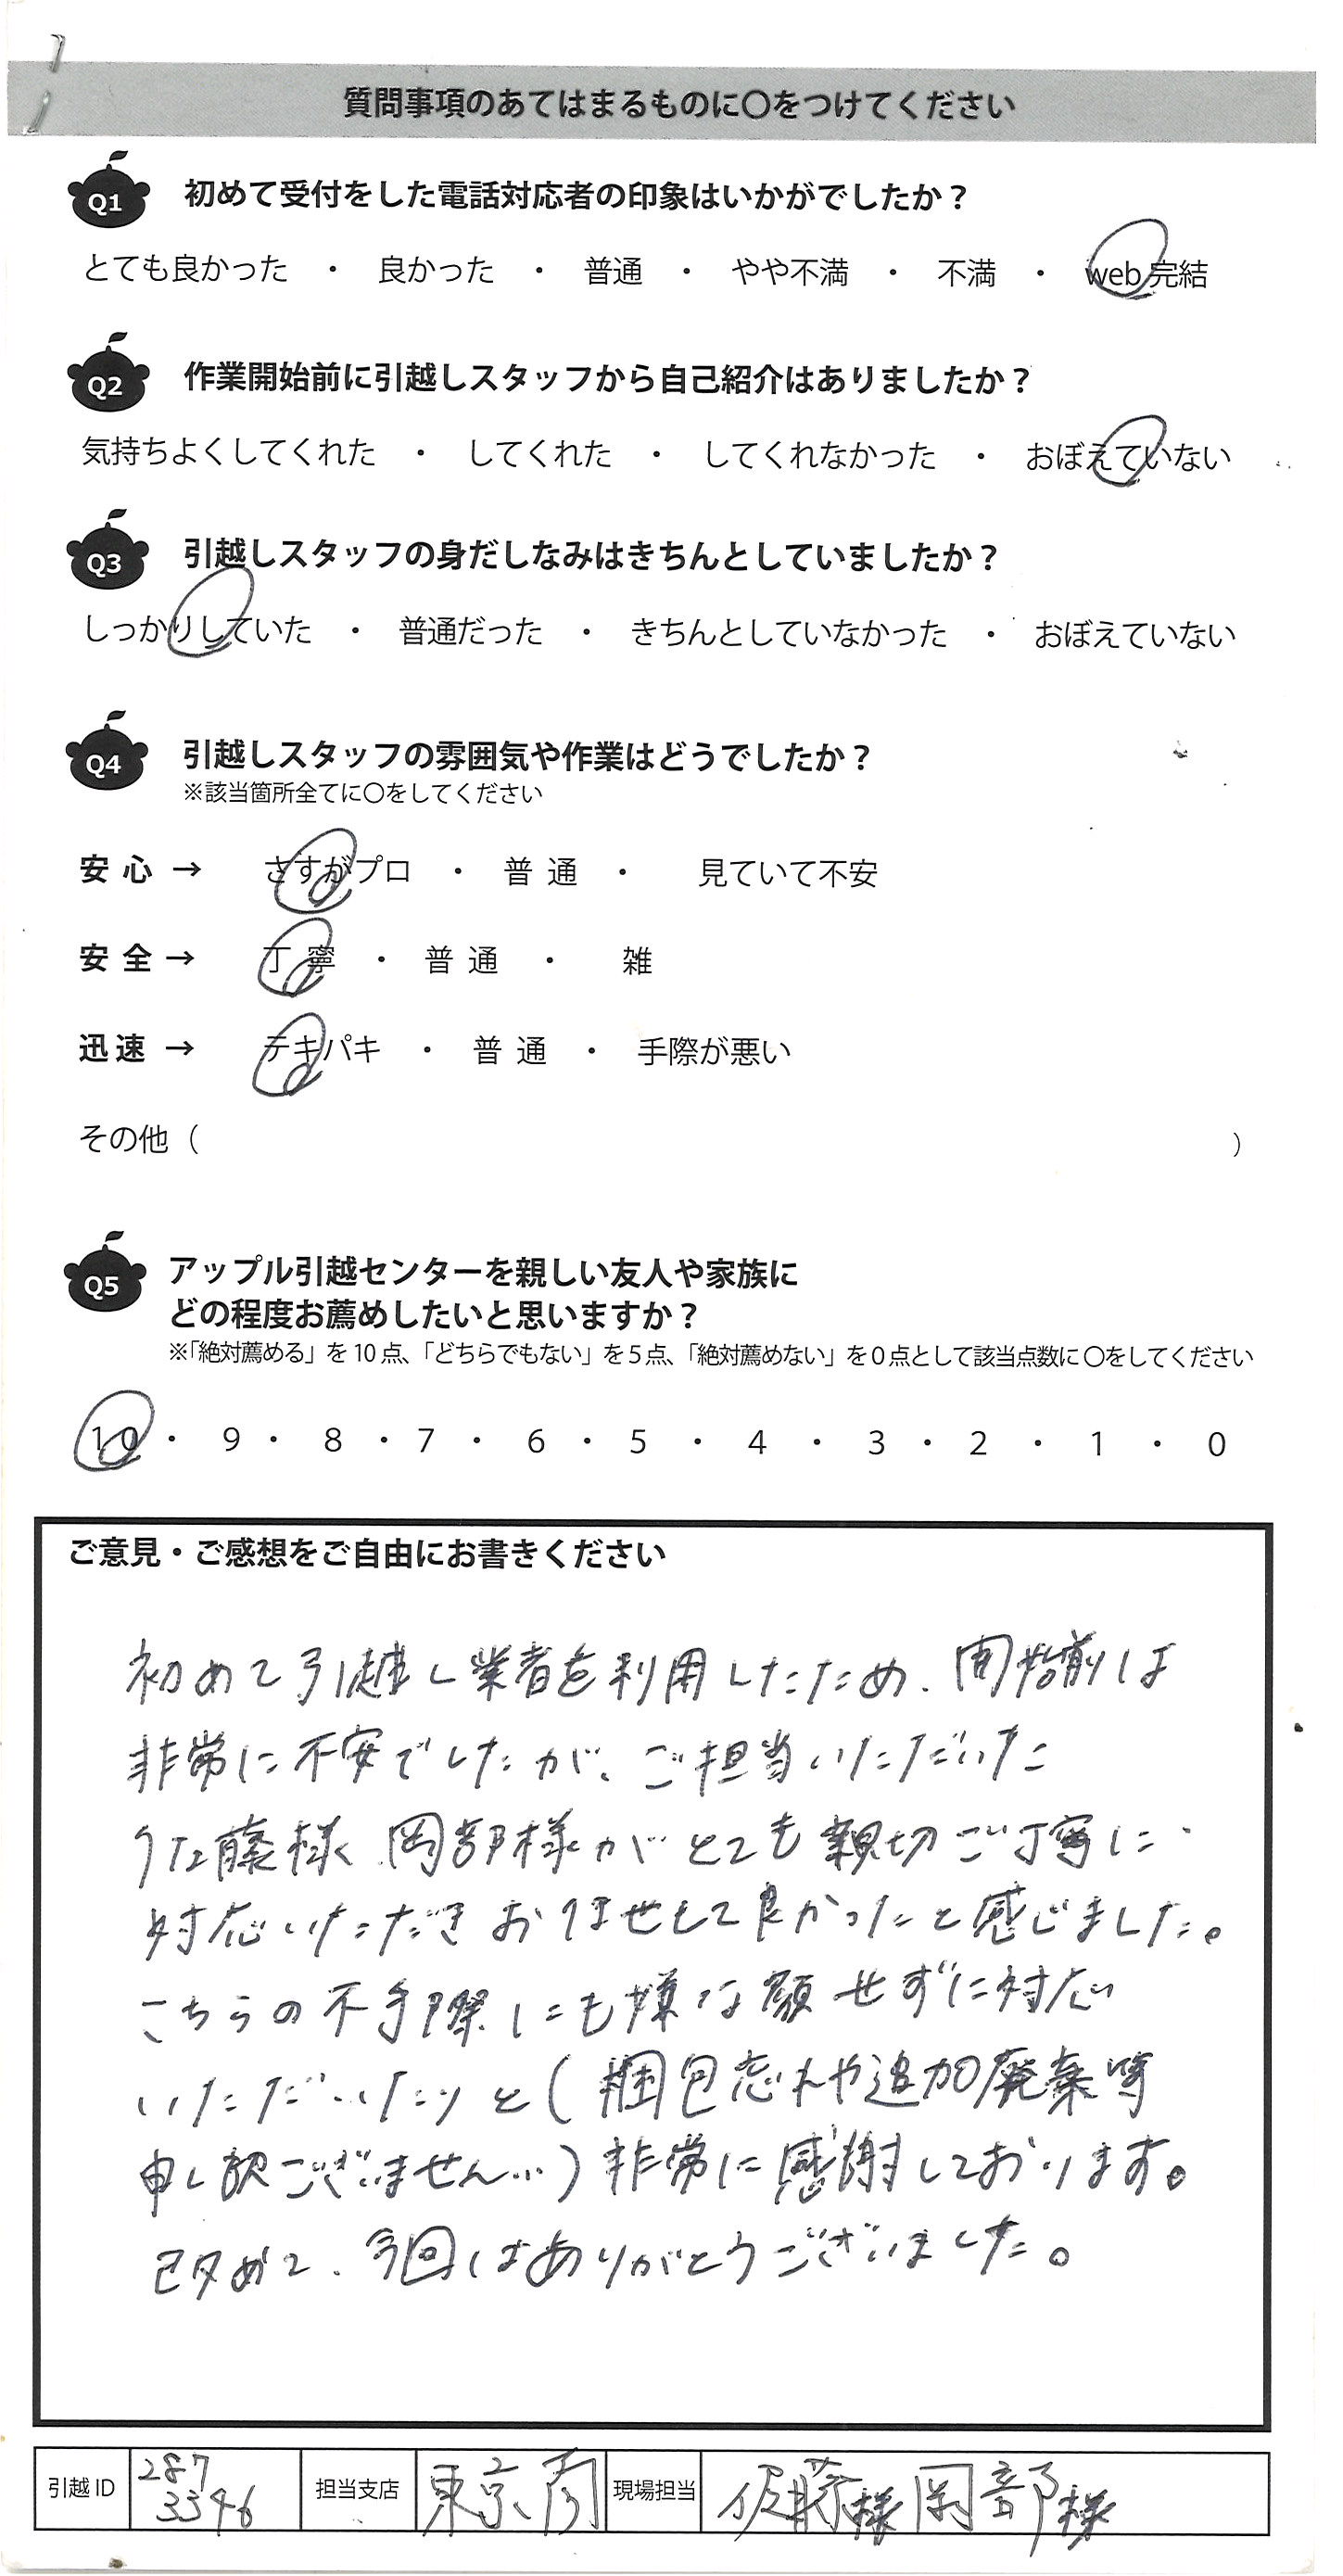 質問事項のあてはまるものに〇をつけてください
Q1 初めて受付をした電話対応者の印象はいかがでしたか？
とても良かった ・ 良かった ・ 普通 ・ やや不満 ・ 不満 ・ web完結
Q2 作業開始前に引越しスタッフから自己紹介はありましたか？
気持ちよくしてくれた ・ してくれた ・ してくれなかった ・ おぼえていない
Q3 引越しスタッフの身だしなみはきちんとしていましたか？
しっかりしていた ・ 普通だった ・ きちんとしていなかった ・ おぼえていない
Q4 引越しスタッフの雰囲気や作業はどうでしたか？
※該当箇所全てに〇をしてください
安心 → さすがプロ ・ 普通 ・ 見ていて不安
安全 → 丁寧 ・ 普通 ・ 雑
迅速 → テキパキ ・ 普通 ・ 手際が悪い
その他（ ）
Q5 アップル引越センターを親しい友人や家族に
どの程度お薦めしたいと思いますか？
※「絶対薦める」を10点、「どちらでもない」を5点、「絶対薦めない」を0点として該当点数に〇をしてください
10 ・ 9 ・ 8 ・ 7 ・ 6 ・ 5 ・ 4 ・ 3 ・ 2 ・ 1 ・ 0
ご意見・ご感想をご自由にお書きください
初めて引越し業者を利用したため、開始前は
非常に不安でしたが、ご担当いただいた
佐藤様 岡部様がとても親切ご丁寧に
対応いただきお任せして良かったと感じました。
こちらの不手際にも嫌な顔せずに対応
いただいたりと(梱包忘れや追加廃棄等
申し訳ございません…)非常に感謝しております。
改めて、今回はありがとうございました。
引越ID 287
3346 担当支店 東京南 現場担当 佐藤様 岡部様